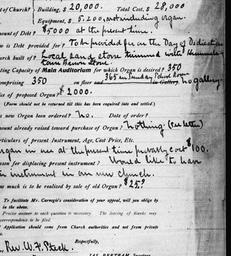 of Church? Building, $20,000. Total Cost? $28,000
Equipment, $5.200, not including organ.
mount of Debt? $5000 at the present time.
is Debt provided for? To be provided for on the Day of Dedication
urch built of? Local Lane stone trimmed with
Cane Stone
ting Capacity of Main Auditorium for which Organ is desired? 350
365 in Sunday School Room
omprising 350 on floor and in the Gallery. No gallery
of proposed Organ? $2000.
(Form should not be returned till this has been enquired into and settled.)
new Organ been ordered? No. Date of order?
mount already raised toward purchase of Organ? Nothing (see letter)
rticulars of present Instrument, Age, Cost Price, Etc.
organ in use at the present time probably cost $100.
eason for displacing present instrument? Would like to have
instrument in our new church.
ow much is to be realized by sale of old Organ? $25.
To facilitate Mr. Carnegie's consideration of your appeal, will you oblige by
in the above.
Precise answer to each question is necessary. The leaving of blanks may
correspondence to be required.
Application should come from Church authorities and not from private
als.
Respectfully,
Rev. W. F.
JAS. BERTRAM